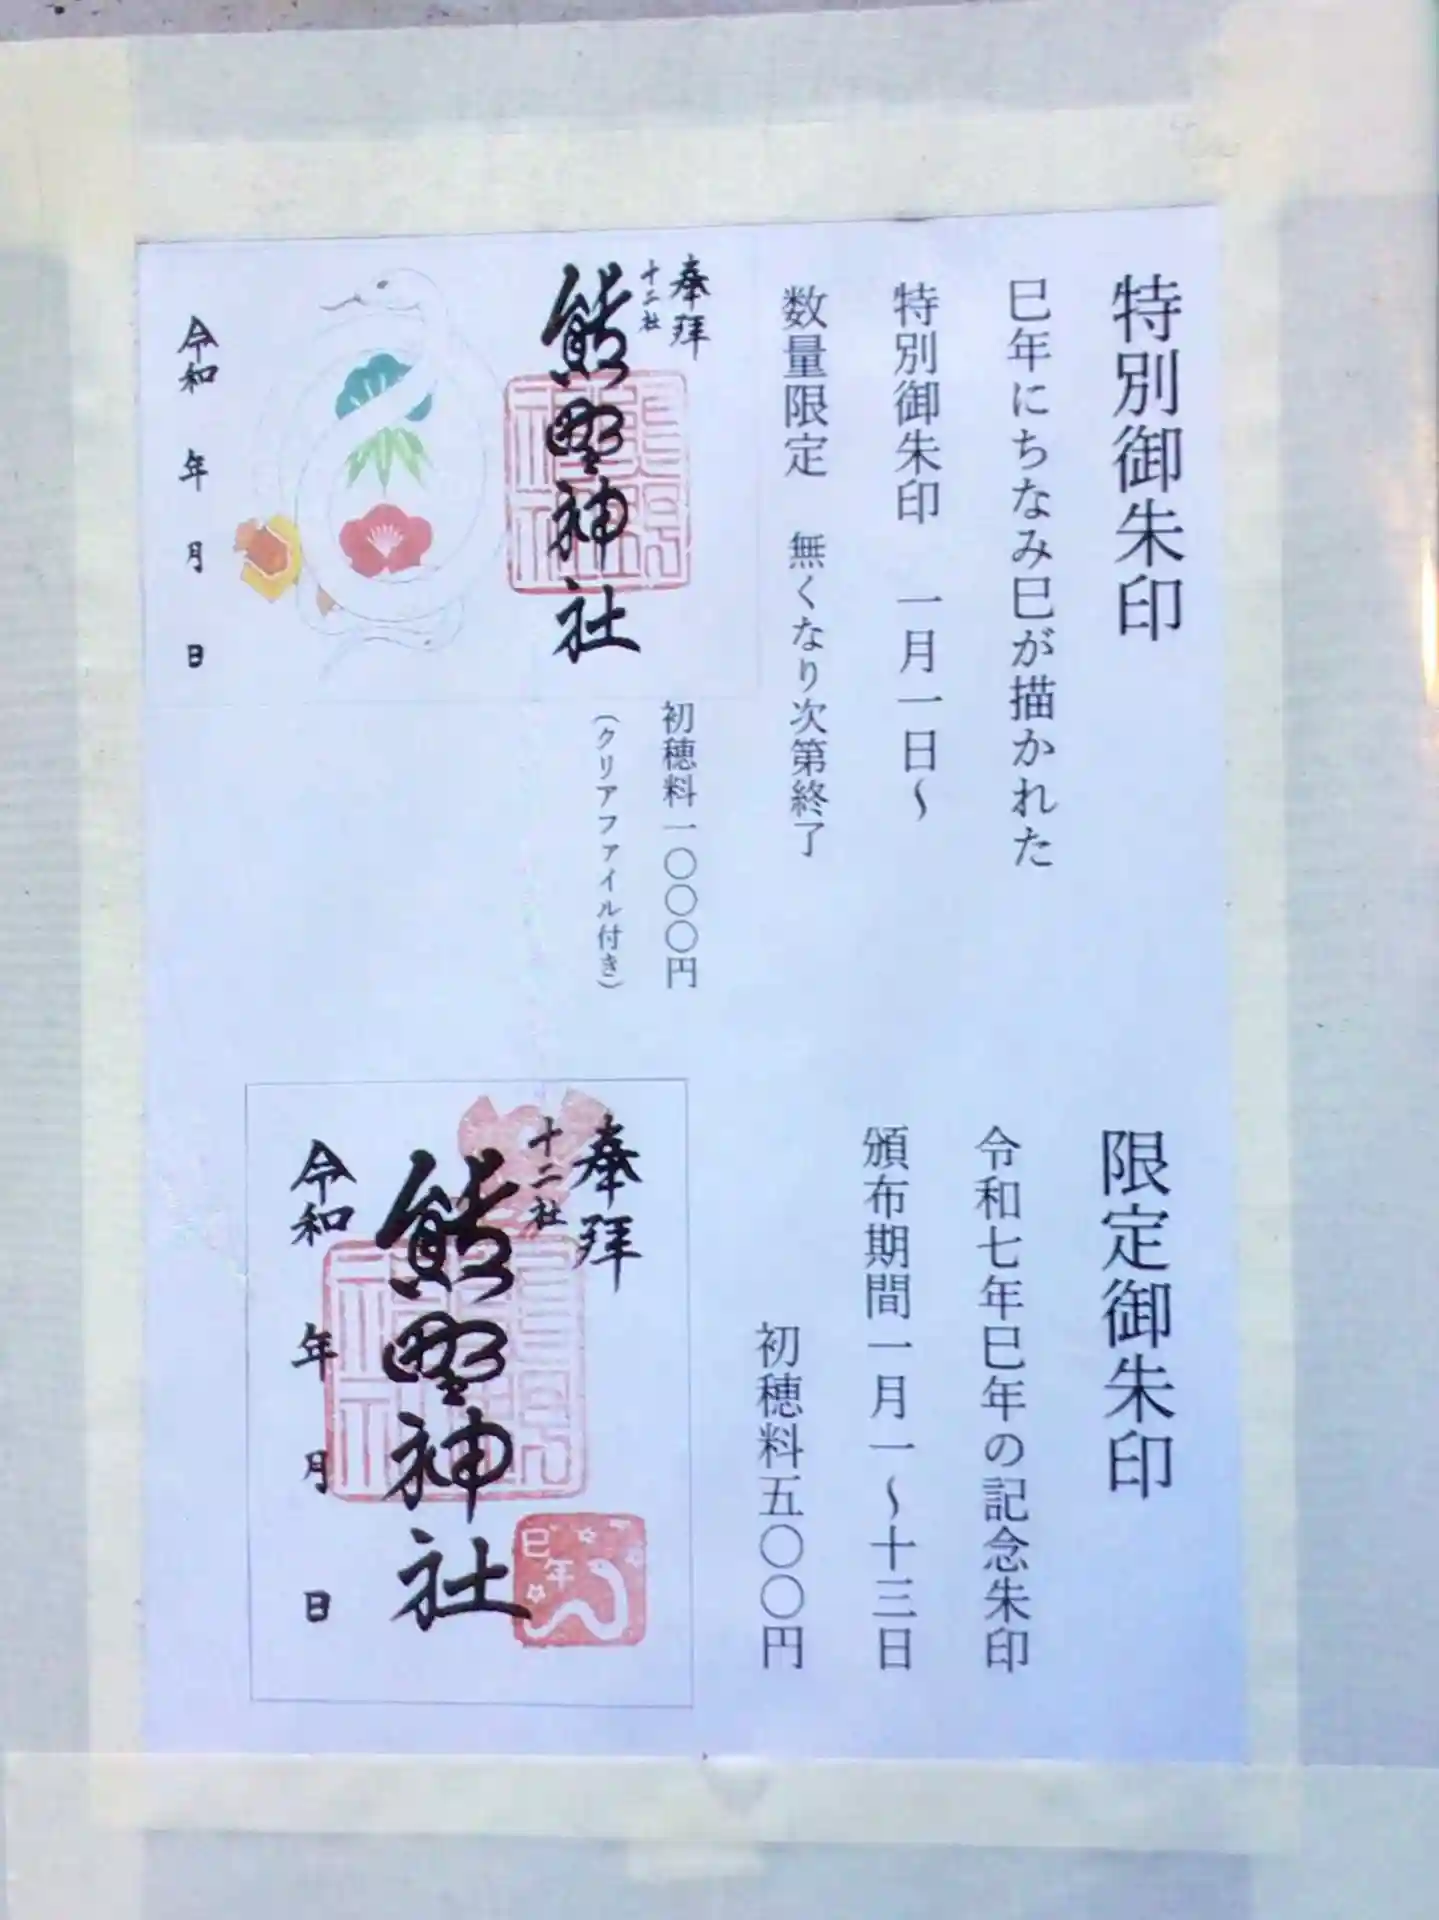 特別御朱印
巳年にちなみ巳が描かれた
特別御朱印　一月一日〜
数量限定　無くなり次第終了
初穂料一〇〇〇円
（クリアファイル付き）
奉拝
十二社
熊野神社
令和　年　月　日
限定御朱印
令和七年巳年の記念朱印
頒布期間一月一〜十三日
初穂料五〇〇円
奉拝
十二社
熊野神社
巳年
令和　年　月　日